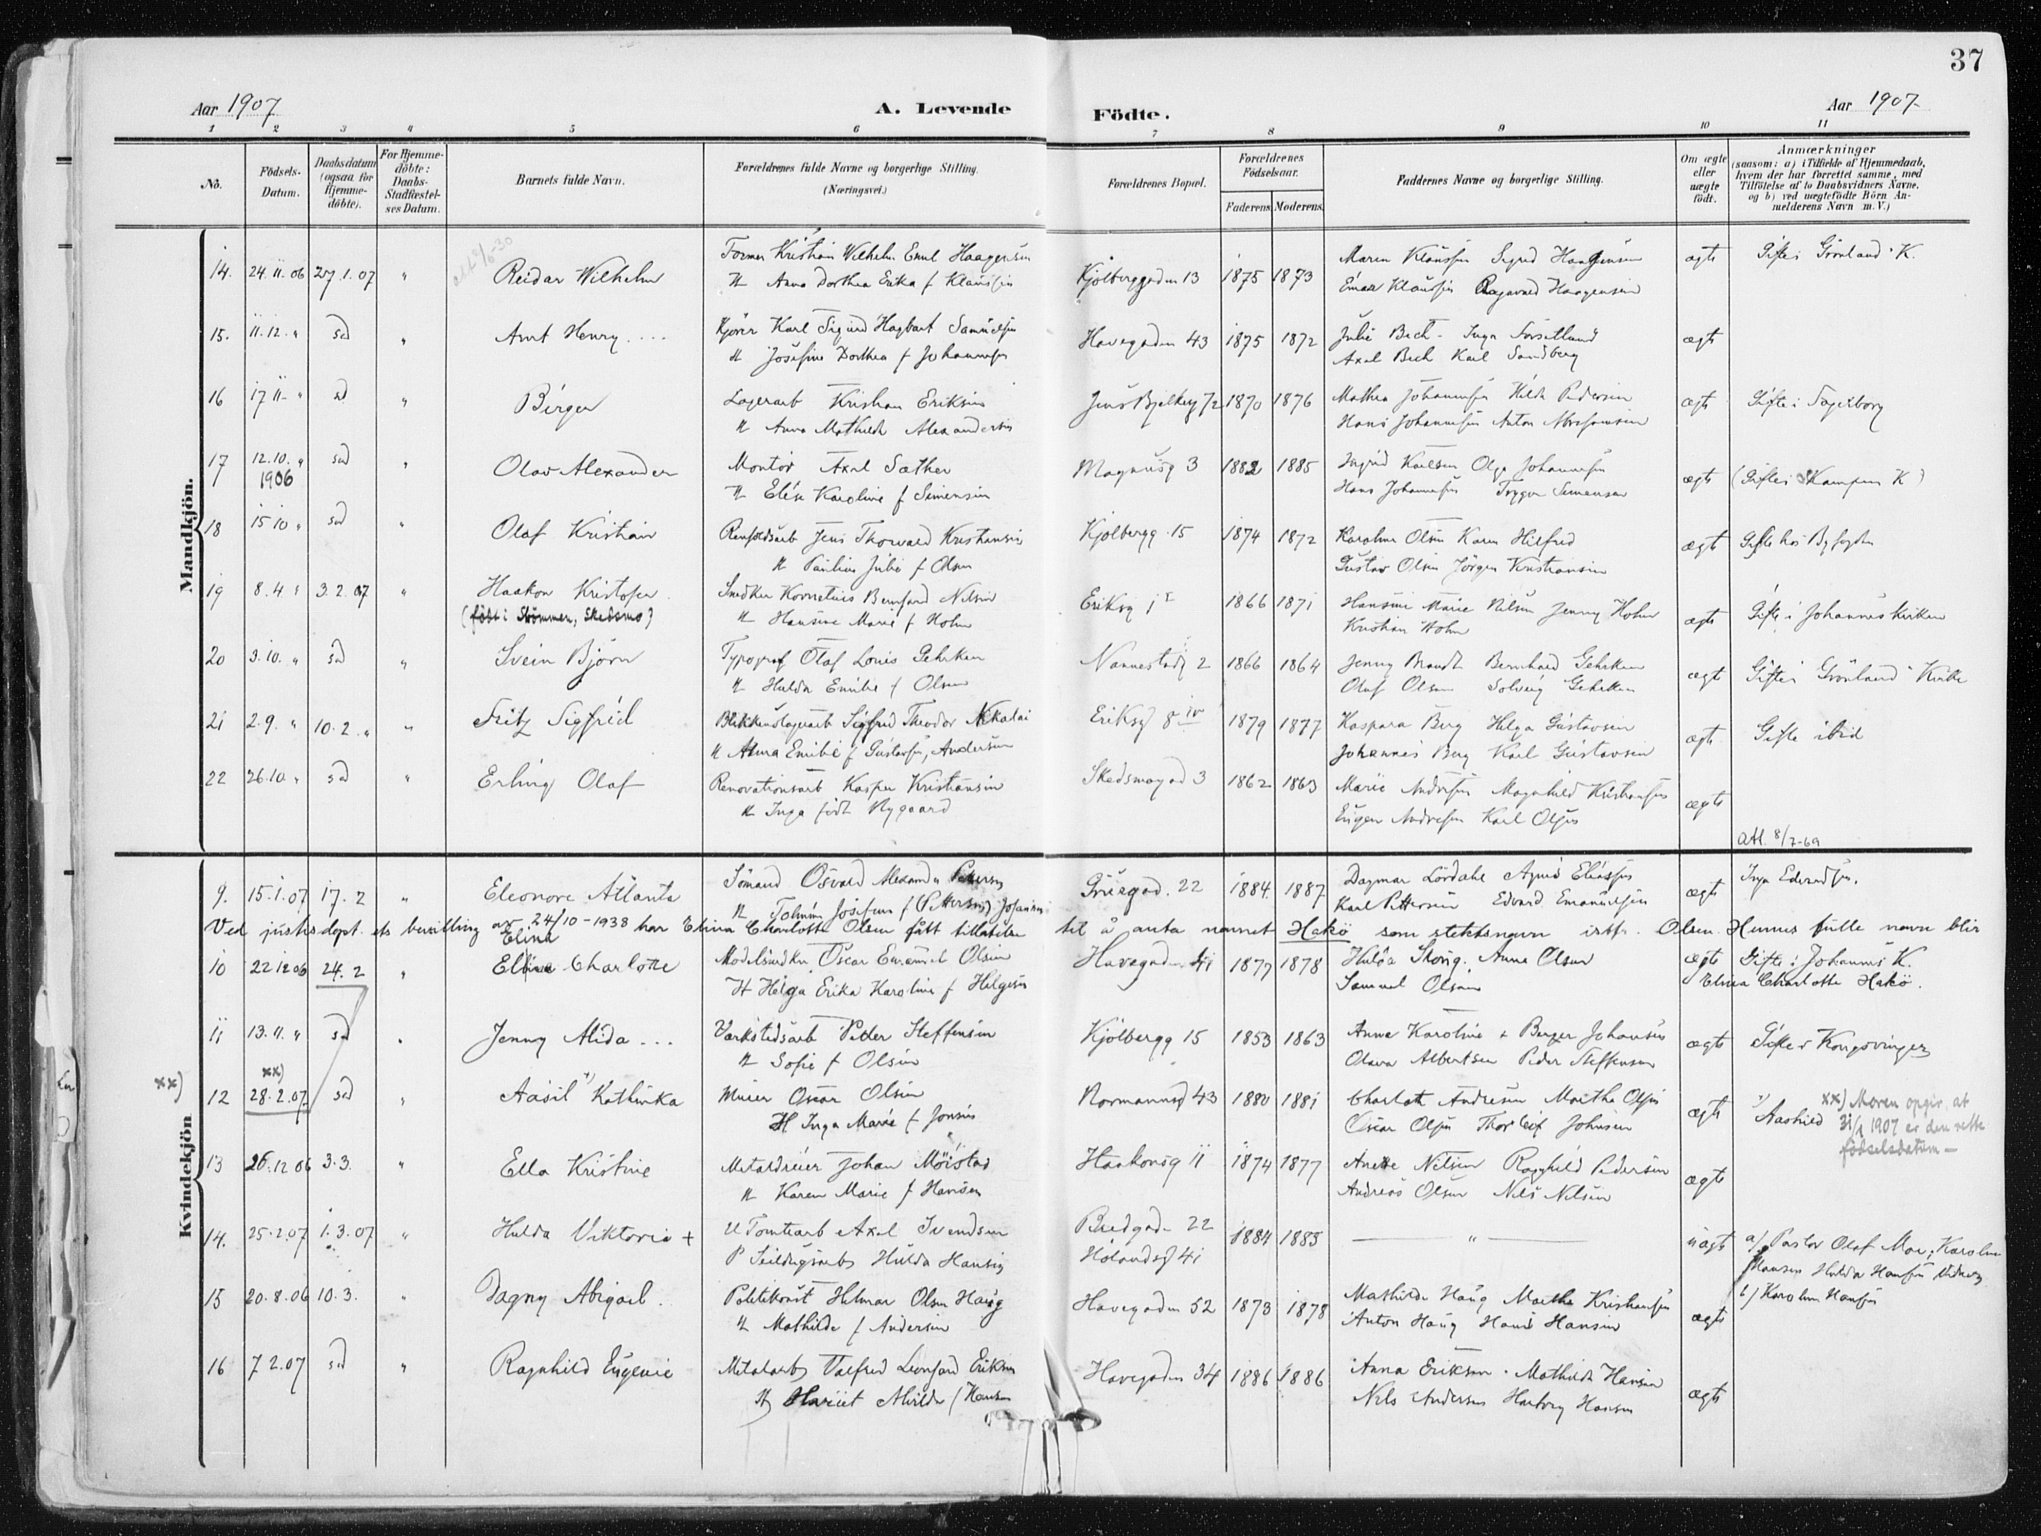 37
Aar 1907
A. Levende
Födte.
Aar 1907
1 2 3 4 5 6 7 8 9 10 11
No.
Födsels-Datum.
Daabsdatum (ogsaa for Hjemmedöbte).
For Hjemmedöbte: Daabs-Stadfæstelses Datum.
Barnets fulde Navn.
Forældrenes fulde Navne og borgerlige Stilling. (Næringsvei.)
Forældrenes Bopæl.
Forældrenes Födselsaar.
Faderens. Moderens.
Faddernes Navne og borgerlige Stilling.
Om ægte eller uægte födt.
Anmærkninger
(saasom: a) i Tilfælde af Hjemmedaab, hvem der har forrettet samme, med Tilföielse af to Daabsvidners Navne, og b) ved uægtefödte Börn Anmelderens Navn m. V.)
Mandkjön.
14. 24.11.06 27.1.07 " Reidar Wilhelm Former Kristian Wilhelm Emil Haagensen Kjölberggaden 13 1875 1873 Maren Klausen Sigrid Haagensen ægte Gifte i Grönland K.
H Anna Dorthea Erika f Klausen Einar Klausen Ragnvald Haagensen
15. 11.12. " sd " Arnt Henry .... Kjörer Karl Sigurd Hagbart Samuelsen Havegaden 43 1875 1872 Julie Bech - Inga ægte
H Josefine Dorthea f Johannesen Axel Bech Karl Sandberg
16 17 11 " sd " Birger Lagerarb Kristian Eriksen Jens Bjelkesg 72 1870 1876 Mathea Johannesen Hilda Pedersen ægte Gifte i
H Anna Mathilde Alexandersen Hans Johannesen Anton
17 12.10. " 1906 sd " Olav Alexander Montör Axel Sæther Magnusg 3 1882 1885 Ingrid Karlsen Olga Johannesen ægte (Gifte i Kampen K)
H Elise Karoline f Simensen Hans Johannesen Trygve Simensen
18 15 10 " sd " Olaf Kristian Renholdsarb Jens Thorvald Kristiansen Kjölbergg 15 1874 1872 Karoline Olsen Karen Hilfred ægte Gifte hos Byfogden
H Pauline Julie f Olsen Gustav Olsen Jörgen Kristiansen
19 8.4 " 3.2.07 " Haakon Kristofer Snedker Kornelius Bernhard Nilsen Eriksg 1 I 1866 1871 Hansine Marie Nilsen Jenny Holm ægte Gifte i Johannes kirken
(født i Strömmen, Skedsmo) H Hansine Marie f Holm Kristian Holm
20 3.10. " sd " Svein Björn Typograf Olaf Louis Gehrken Nannestadg 2 1866 1864 Jenny Brandt Bernhard Gehrken ægte Gifte i Grönland Kirke
H Hulda Emilie f Olsen Olaf Olsen Solveig Gehrken
21 2.9. " 10.2. " " Fritz Sigfrid Blikkenslagerarb Sigfrid Theodor Nikolai Eriksg 8 IV 1879 1877 Kaspara Berg Helga Gustavsen ægte Gifte ibid
H Anna Emilie f Gustavsen, Andersen Johannes Berg Karl Gustavsen
22 26.10. " sd " Erling Olaf Renovationsarb Kasper Kristiansen Skedsmogd 3 1862 1863 Marie Andresen Magnhild Kristiansen ægte
H Inga født Nygaard Eugen Andresen Karl Olsen
att. 8/7-69
Kvindekjön
9. 15.1.07 17.2 " Eleonore Atlanta Sömand Osvald Alexander Pettersen Grüegad. 22 1884. 1887 Dagmar Lördahl Agnes Eliasen ægte Inga Edvardsen.
H Josefine f (Pettersen) Karl Pettersen Edvard Emanuelsen
Ved justisdept. ets bevilling av 24/10-1938 har Elina Charlotte Olsen fått tillatelse til å anta navnet Hakö som slektsnavn istf. Olsen. Hennes fulle navn blir
Elina
10 22 12 06 24.2 " Charlotte Modelsnedker Oscar Emanuel Olsen Havegaden 41 1877 1878 Hulda Skovig. Anna Olsen ægte Gifte i Johannes K.
H Helga Erika Karoline f Helgesen Samuel Olsen Elina Charlotte Hakö.
11 13.11. " sd " Jenny Alida ... Værkstedsarb Peder Steffensen Kjölbergg 15 1853 1863 Anna Karoline & Birger Johansen ægte Gifte i Kongsvinger
H Sofie f Olsen Olava Albertsen Peder Steffensen
xx) 12 xx) 28.2.07 sd " Aasil +) Kathinka Murer Oscar Olsen Normannsg 43 1880 1881 Charlotte Andresen Marthe Olsen ægte +) Aashild
H Inga Marie f Jonsen Oscar Olsen Thorleif Johnsen
xx) Moren opgir, at 31/1 1907 er den rette födselsdatum —
13 26.12 06 3.3. " Ella Kristine Metaldreier Johan Möistad Haakonsg 11 1874 1877 Anette Nilsen Ragnhild Pedersen ægte
H Karen Marie f Hansen Andreas Olsen Nils Nilsen
14. 25.2.07 1.3.07 " Hulda Viktoria + U Tomtearb Axel Svendsen Bredgad. 22 1884 1885 " uægte a/ Pastor Olaf Moe, Karoline
P Seildugsarb Hulda Hansen Hölandsg 41 Hansen Hulda Hansen
b/ Karoline Hansen
15 20.8.06 10.3. " Dagny Abigael. Politibetjt Hilmar Olsen Haug Havegaden 52 1873 1878 Mathilde Haug Marthe Kristiansen ægte
H Mathilde f Andersen Anton Haug Hans Hansen
16 7 2.07 sd " Ragnhild Eugenie Metalarb Valfred Leonhard Eriksen Havegaden 34 1886 1886 Anna Eriksen. Mathilde Hansen ægte
H Harriet Alvilde f Hansen Nils Andersen Hartvig Hansen